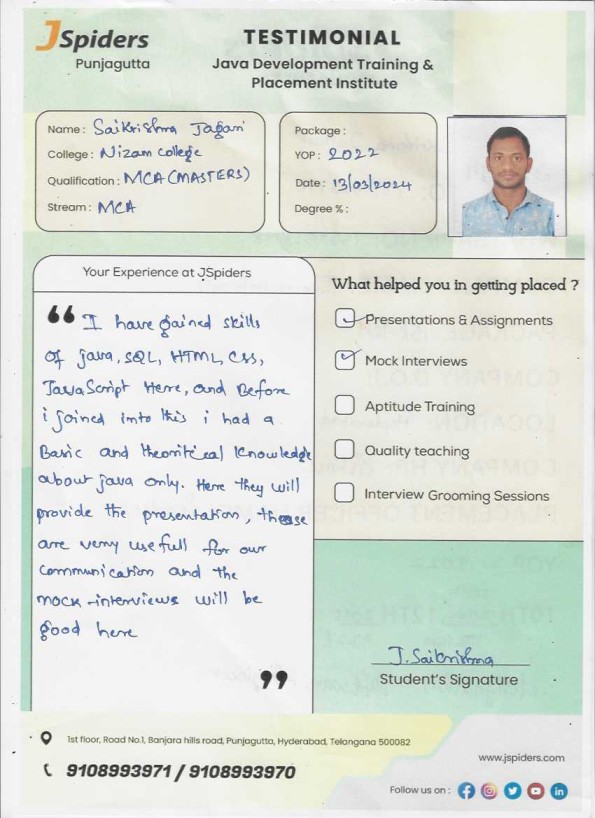 JSpiders
Punjagutta
TESTIMONIAL
Java Development Training &
Placement Institute
Name : Saikrishna Jagari
College : Nizam college
Qualification : MCA (MASTERS)
Stream : MCA
Package :
YOP : 2022
Date : 13/03/2024
Degree % :
Your Experience at JSpiders
“ I have gained skills
of java, SQL, HTML, CSS,
JavaScript Here, and Before
i joined into this i had a
Basic and theoritical Knowledge
about java only. Here they will
provide the presentation, these
are very usefull for our
communication and the
mock-interviews will be
good here
”
What helped you in getting placed ?
Presentations & Assignments
Mock Interviews
Aptitude Training
Quality teaching
Interview Grooming Sessions
J. Saikrishna
Student's Signature
1st floor, Road No.1, Banjara hills road, Punjagutta, Hyderabad, Telangana 500082
9108993971 / 9108993970
www.jspiders.com
Follow us on :